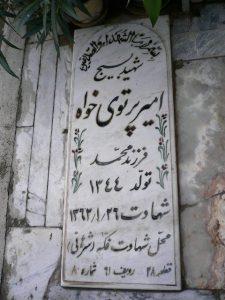 شهید بسیج
امیر پرتوی خواه
فرزند محمد
تولد ۱۳۴۴
شهادت ۱۳۶۲/۱/۲۶
محل شهادت فکه (شرهانی)
قطعه ۲۸ ردیف ۶۱ شماره ۸